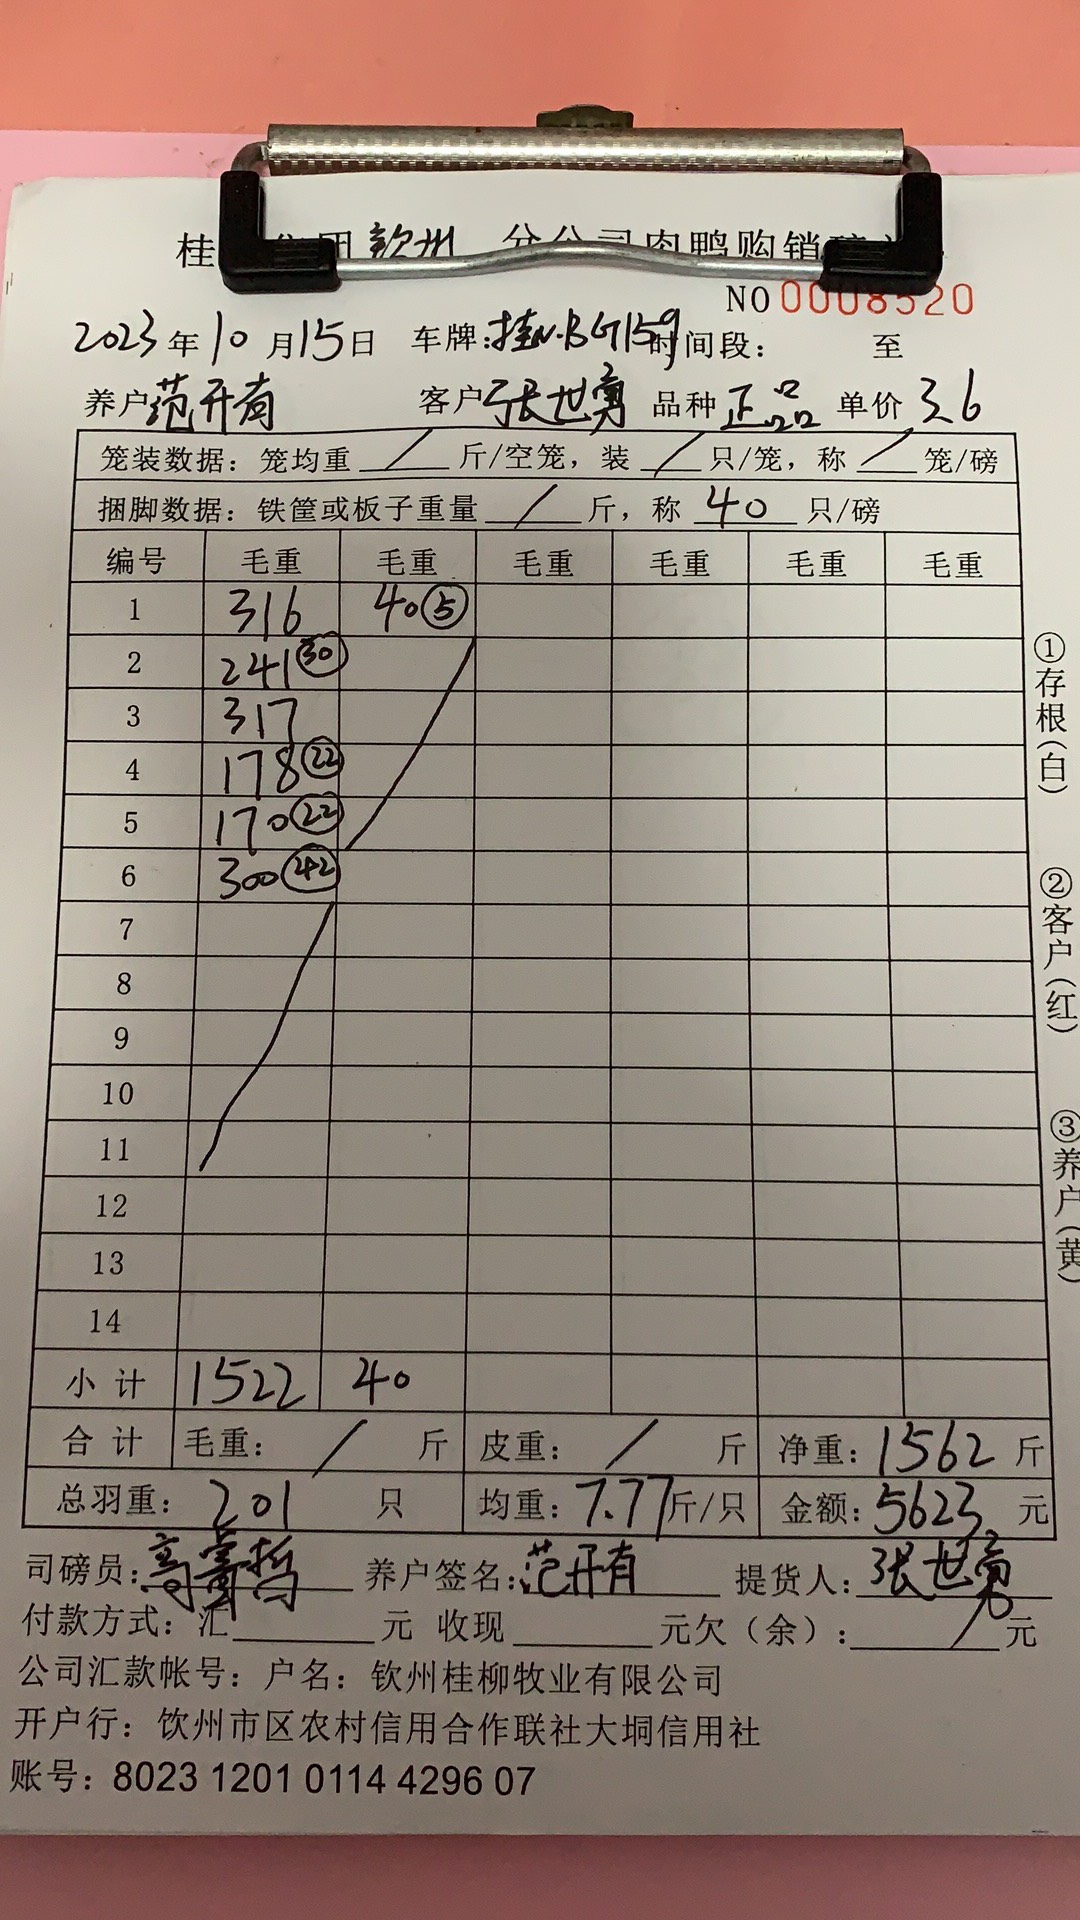 桂 集团 钦州 分公司肉鸭购销
NO 0008520
2023年10月15日 车牌:桂N·BG159 时间段: 至
养户 范开有 客户 张世勇 品种 正品 单价 3.6
笼装数据: 笼均重 / 斤/空笼, 装 / 只/笼, 称 / 笼/磅
捆脚数据: 铁筐或板子重量 / 斤, 称 40 只/磅
编号 毛重 毛重 毛重 毛重 毛重 毛重
1 316 40 ⑤
2 241 ㉚
3 317
4 178 ㉒
5 170 ㉒
6 300 ㊷
7
8
9
10
11
12
13
14
小计 1522 40
合计 毛重: / 斤 皮重: / 斤 净重: 1562 斤
总羽重: 201 只 均重: 7.77 斤/只 金额: 5623 元
司磅员: 养户签名: 范开有 提货人: 张世勇
付款方式: 汇 元 收现 元欠(余): / 元
公司汇款帐号: 户名: 钦州桂柳牧业有限公司
开户行: 饮州市区农村信用合作联社大垌信用社
账号: 8023 1201 0114 4296 07
①存根(白)
②客户(红)
③养户(黄)